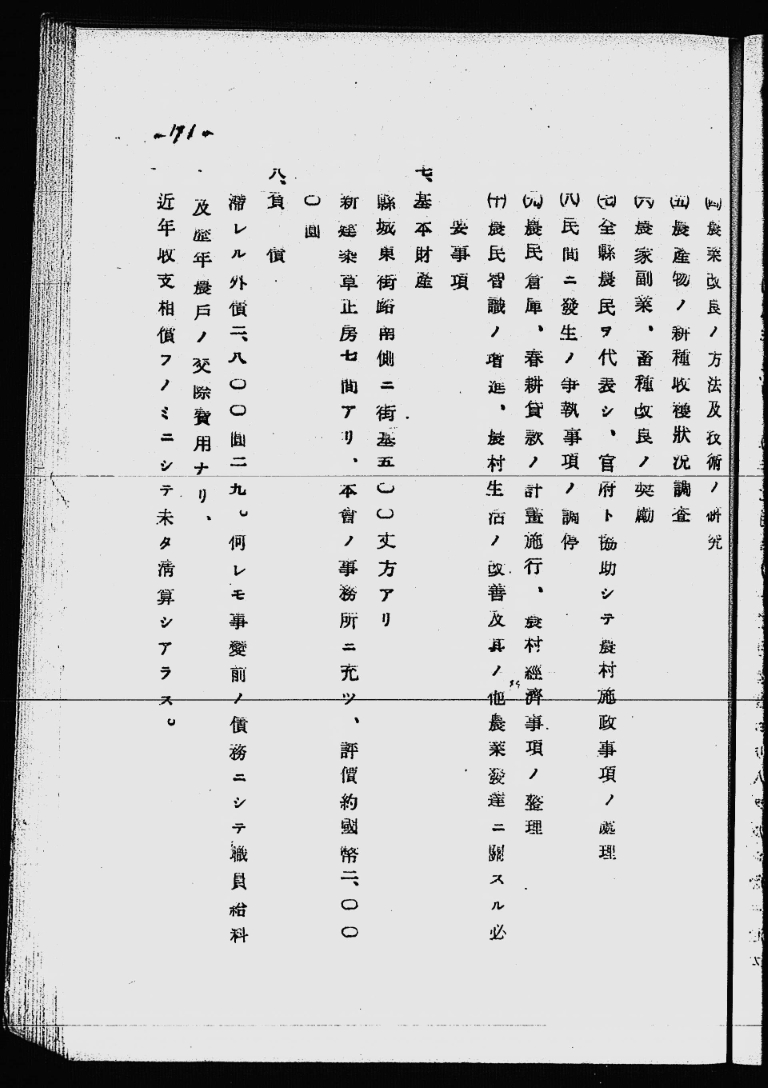 (四)農業改良ノ方法及技術ノ研究
(五)農産物ノ新種收穫狀況調査
(六)農家副業、畜種改良ノ奨勵
(七)全縣農民ヲ代表シ、官府ト協助シテ農村施政事項ノ處理
(八)民間ニ發生ノ爭執事項ノ調停
(九)農民倉庫、春耕貸款ノ計畫施行、農村經濟事項ノ整理
(十)農民智識ノ増進、農村生活ノ改善及其ノ他農業發達ニ關スル必
要事項
七、基本財産
縣城東街路南側ニ街基五〇〇丈方アリ
新建染草正房七間アリ、本會ノ事務所ニ充ツ、評價約國幣二、〇〇
〇圓
八、負債
滯レル外債二、八〇〇圓二九。何レモ事變前ノ債務ニシテ職員給料
及歷年農戶ノ交際費用ナリ、
近年收支相償フノミニシテ未タ淸算シアラス。
-171-